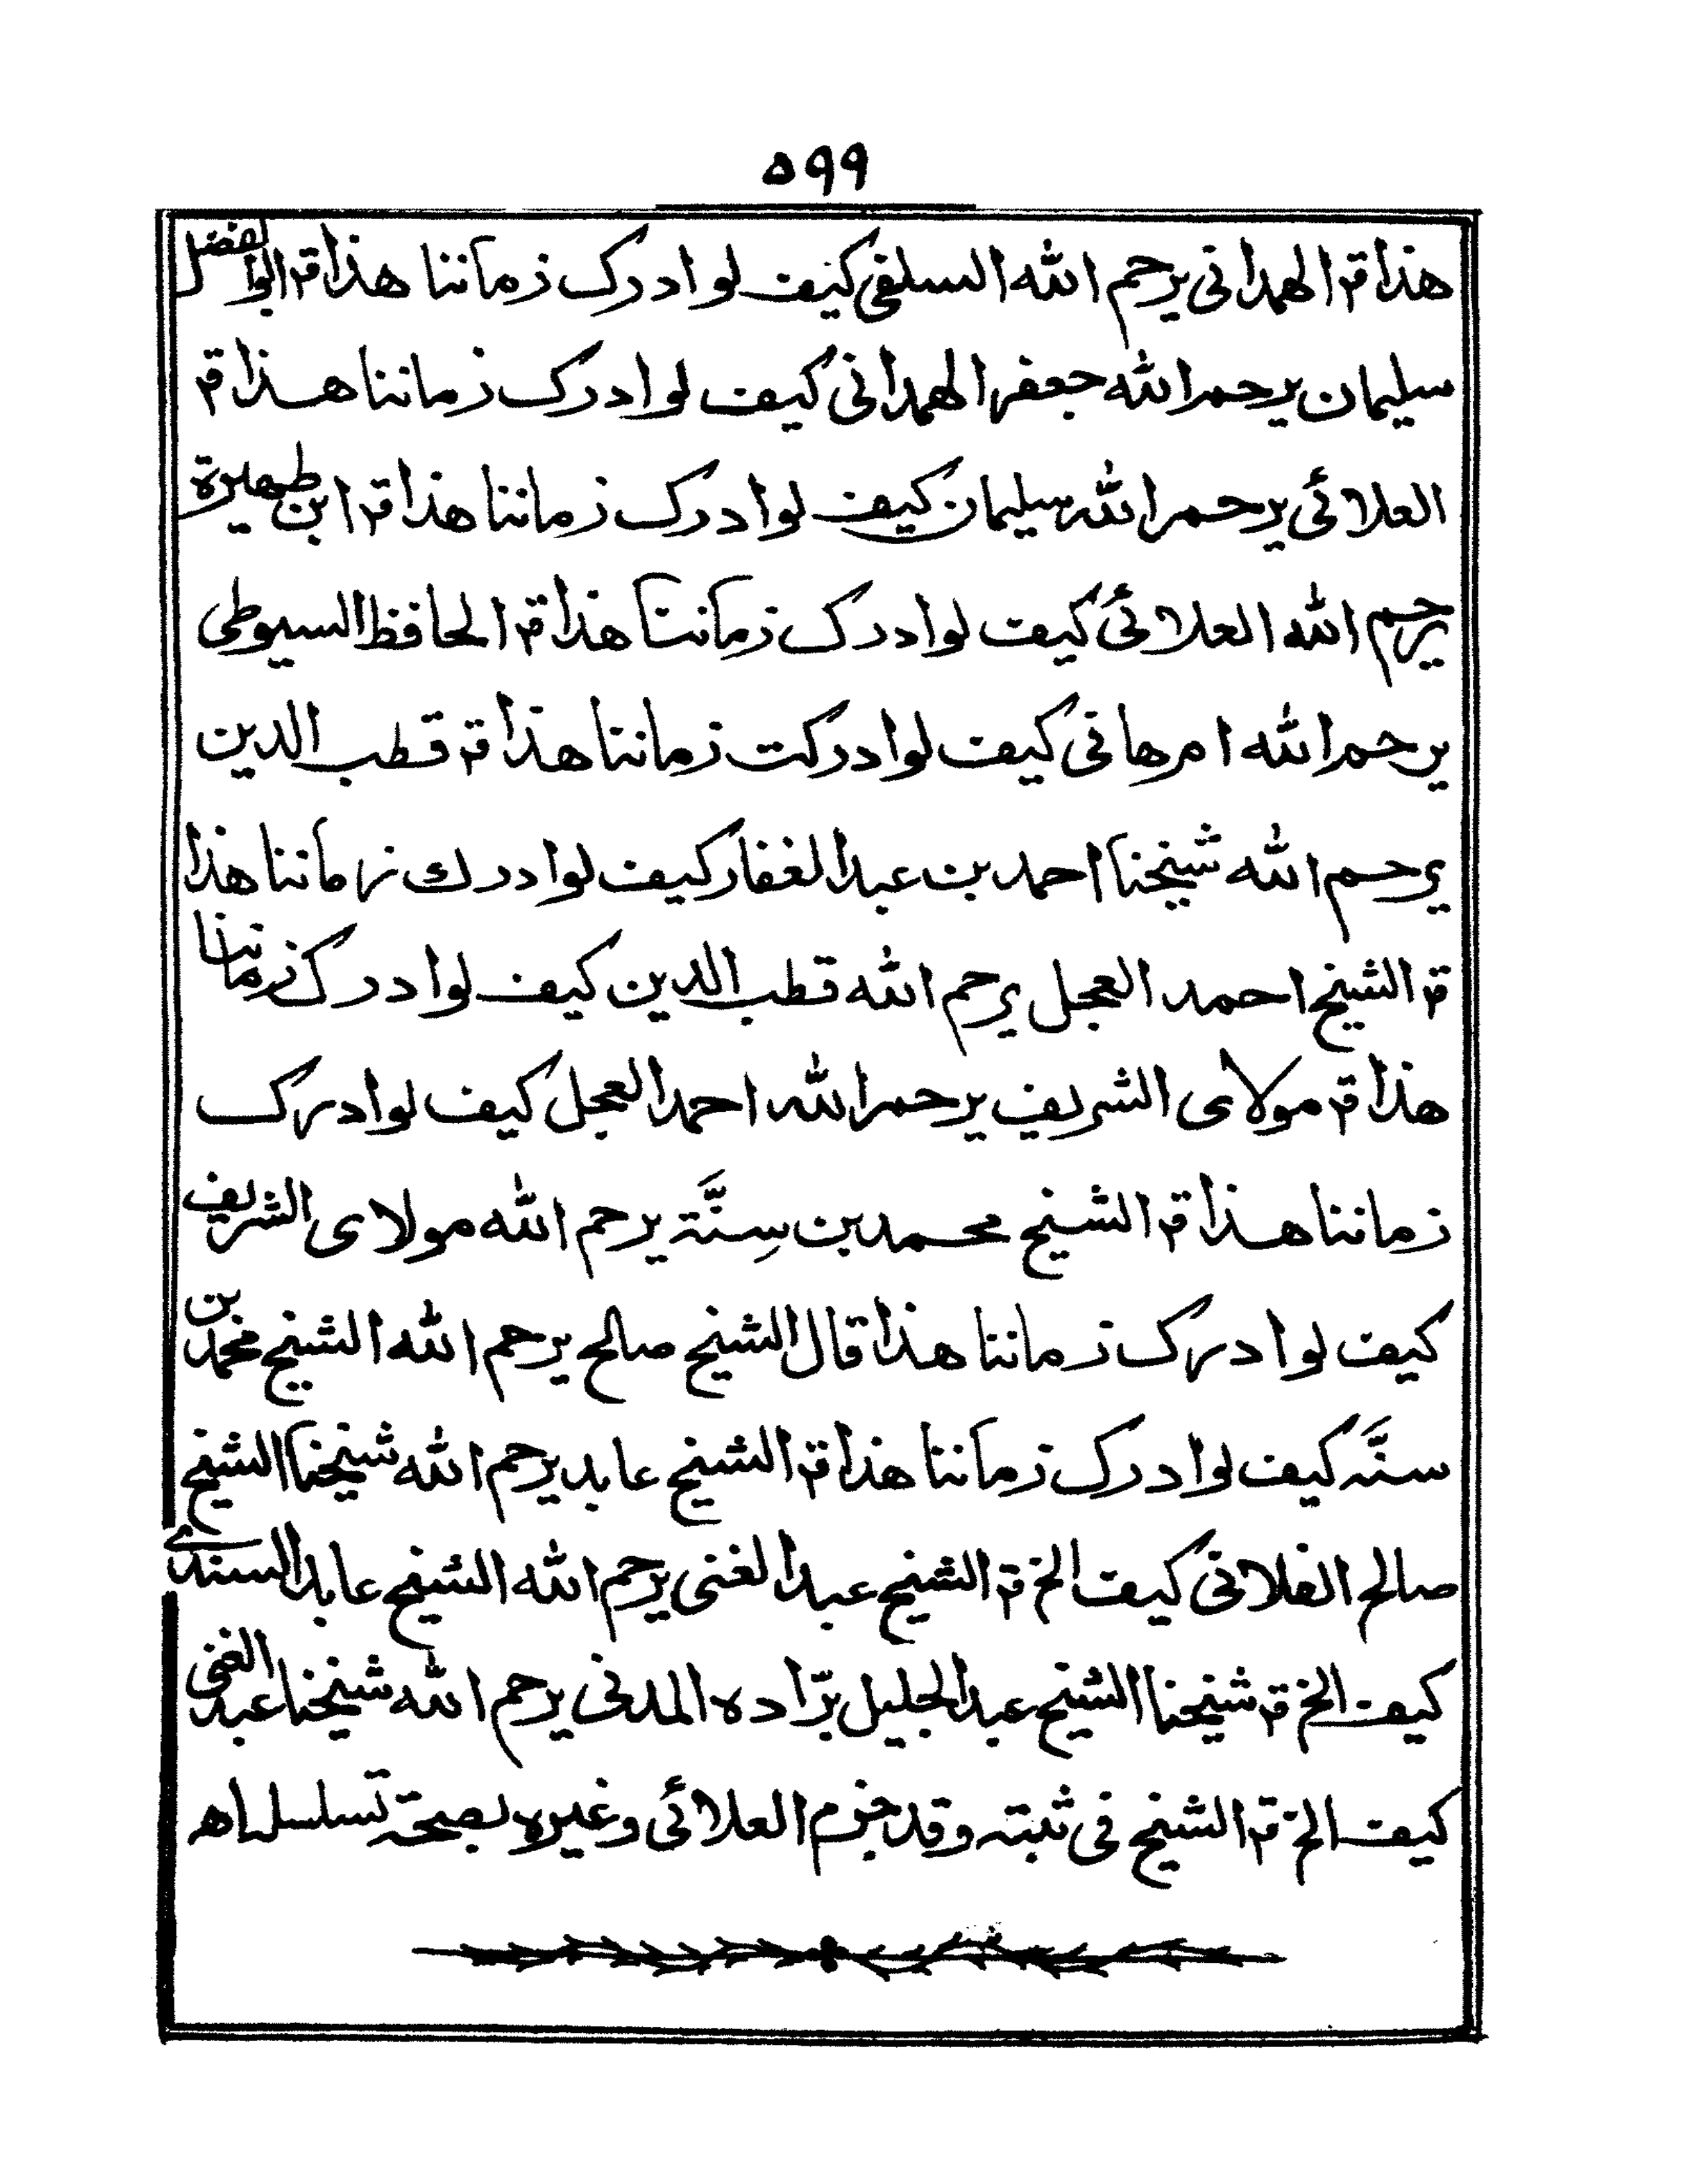 ٥٩٩
هذا قہ الهمدانی یرحم الله السلفی کیف لوادرک زماننا هذا قہ ابوالفضل
سلیمان یرحم الله جعفر الهمدانی کیف لوادرک زماننا هذا قہ
العلائی یرحم الله سلیمان کیف لوادرک زماننا هذا قہ ابن ظهیرة
یرحم الله العلائی کیف لوادرک زماننا هذا قہ الحافظ السیوطی
یرحم الله کیف لوادرکت زماننا هذا قہ قطب الدین
یرحم الله شیخنا احمد بن عبدالغفار کیف لوادرك زماننا هذا
قہ الشیخ احمد العجل یرحم الله قطب الدین کیف لوادرک زماننا
هذا قہ مولای الشریف یرحم الله احمد العجل کیف لوادرک
زماننا هذا قہ الشیخ محمد بن سِنَّة یرحم الله مولای الشریف
کیف لوادرک زماننا هذا قال الشیخ صالح یرحم الله الشیخ محمد بن
سنَّہ کیف لوادرک زماننا هذا قہ الشیخ عابد یرحم الله شیخنا الشیخ
صالح الفلانی کیف الخ قہ الشیخ عبدالغنی یرحم الله الشیخ عابد السندے
کیف الخ قہ شیخنا الشیخ عبدالجلیل برّاده المدنی یرحم الله شیخنا عبد الغنی
کیف الخ قہ الشیخ فی ثبتہ وقد جزم العلائی وغیره بصحة تسلسله اھ